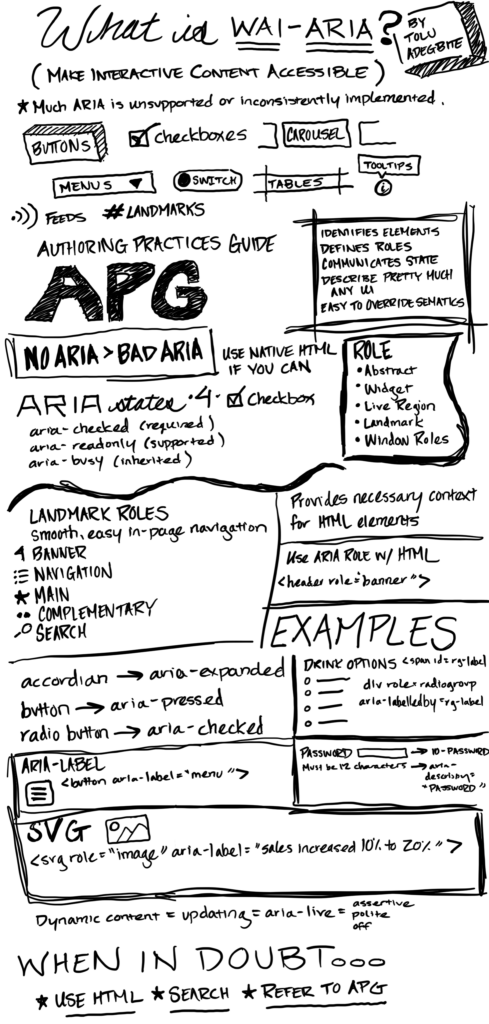 What is WAI-ARIA?
BY TOLU ADEGBITE
(MAKE INTERACTIVE CONTENT ACCESSIBLE)
★ Much ARIA is unsupported or inconsistently implemented.
BUTTONS
checkboxes
CAROUSEL
MENUS
SWITCH
TABLES
TOOLTIPS
i
FEEDS
#LANDMARKS
AUTHORING PRACTICES GUIDE
APG
IDENTIFIES ELEMENTS
DEFINES ROLES
COMMUNICATES STATE
DESCRIBE PRETTY MUCH
ANY UI
EASY TO OVERRIDE SEMATICS
NO ARIA > BAD ARIA
USE NATIVE HTML
IF YOU CAN
ROLE
• Abstract
• Widget
• Live Region
• Landmark
• Window Roles
ARIA states • 4 • checkbox
aria-checked (required)
aria-readonly (supported)
aria-busy (inherited)
LANDMARK ROLES
Smooth, easy in-page navigation
BANNER
NAVIGATION
★ MAIN
COMPLEMENTARY
SEARCH
Provides necessary context
for HTML elements
Use ARIA ROLE W/ HTML
<header role="banner">
EXAMPLES
accordian → aria-expanded
button → aria-pressed
radio button → aria-checked
DRINK OPTIONS <span id=rg-label
div role=radiogroup
aria-labelledby=rg-label
ARIA-LABEL
<button aria-label="menu">
PASSWORD → ID-PASSWORD
Must be 12 characters → aria-
"PASSWORD"
SVG
<svg role="image" aria-label="sales increased 10% to 20%">
Dynamic content = updating = aria-live = assertive
polite
off
WHEN IN DOUBT...
★ USE HTML ★ SEARCH ★ REFER TO APG